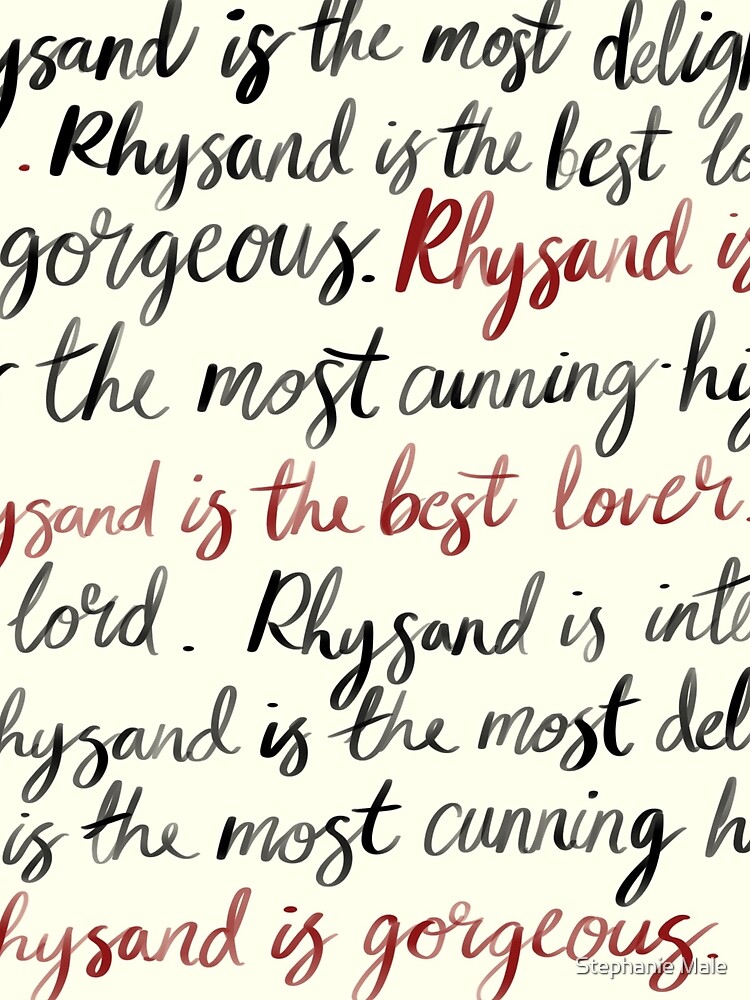 ysand is the most delig
. Rhysand is the best lo
gorgeous. Rhysand is
the most cunning hi
ysand is the best lover.
lord. Rhysand is inte
hysand is the most del
is the most cunning h
hysand is gorgeous.
Stephanie Male